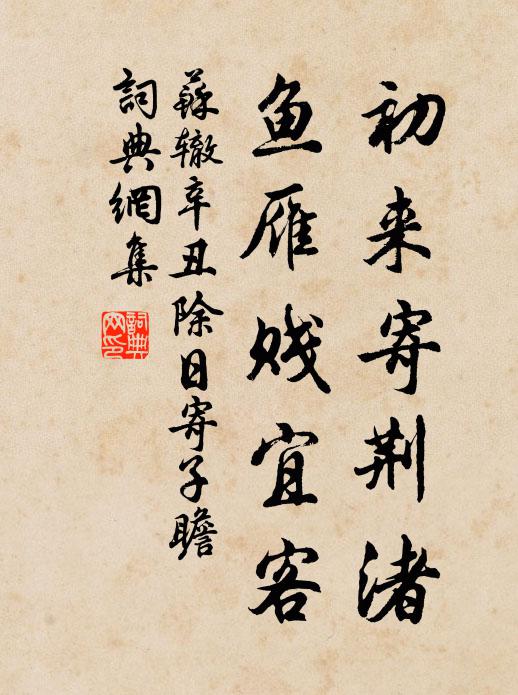 初来寄荆渚
鱼雁贱宜客
蘇辙辛丑除日寄子瞻
詞典網集
詞典网印